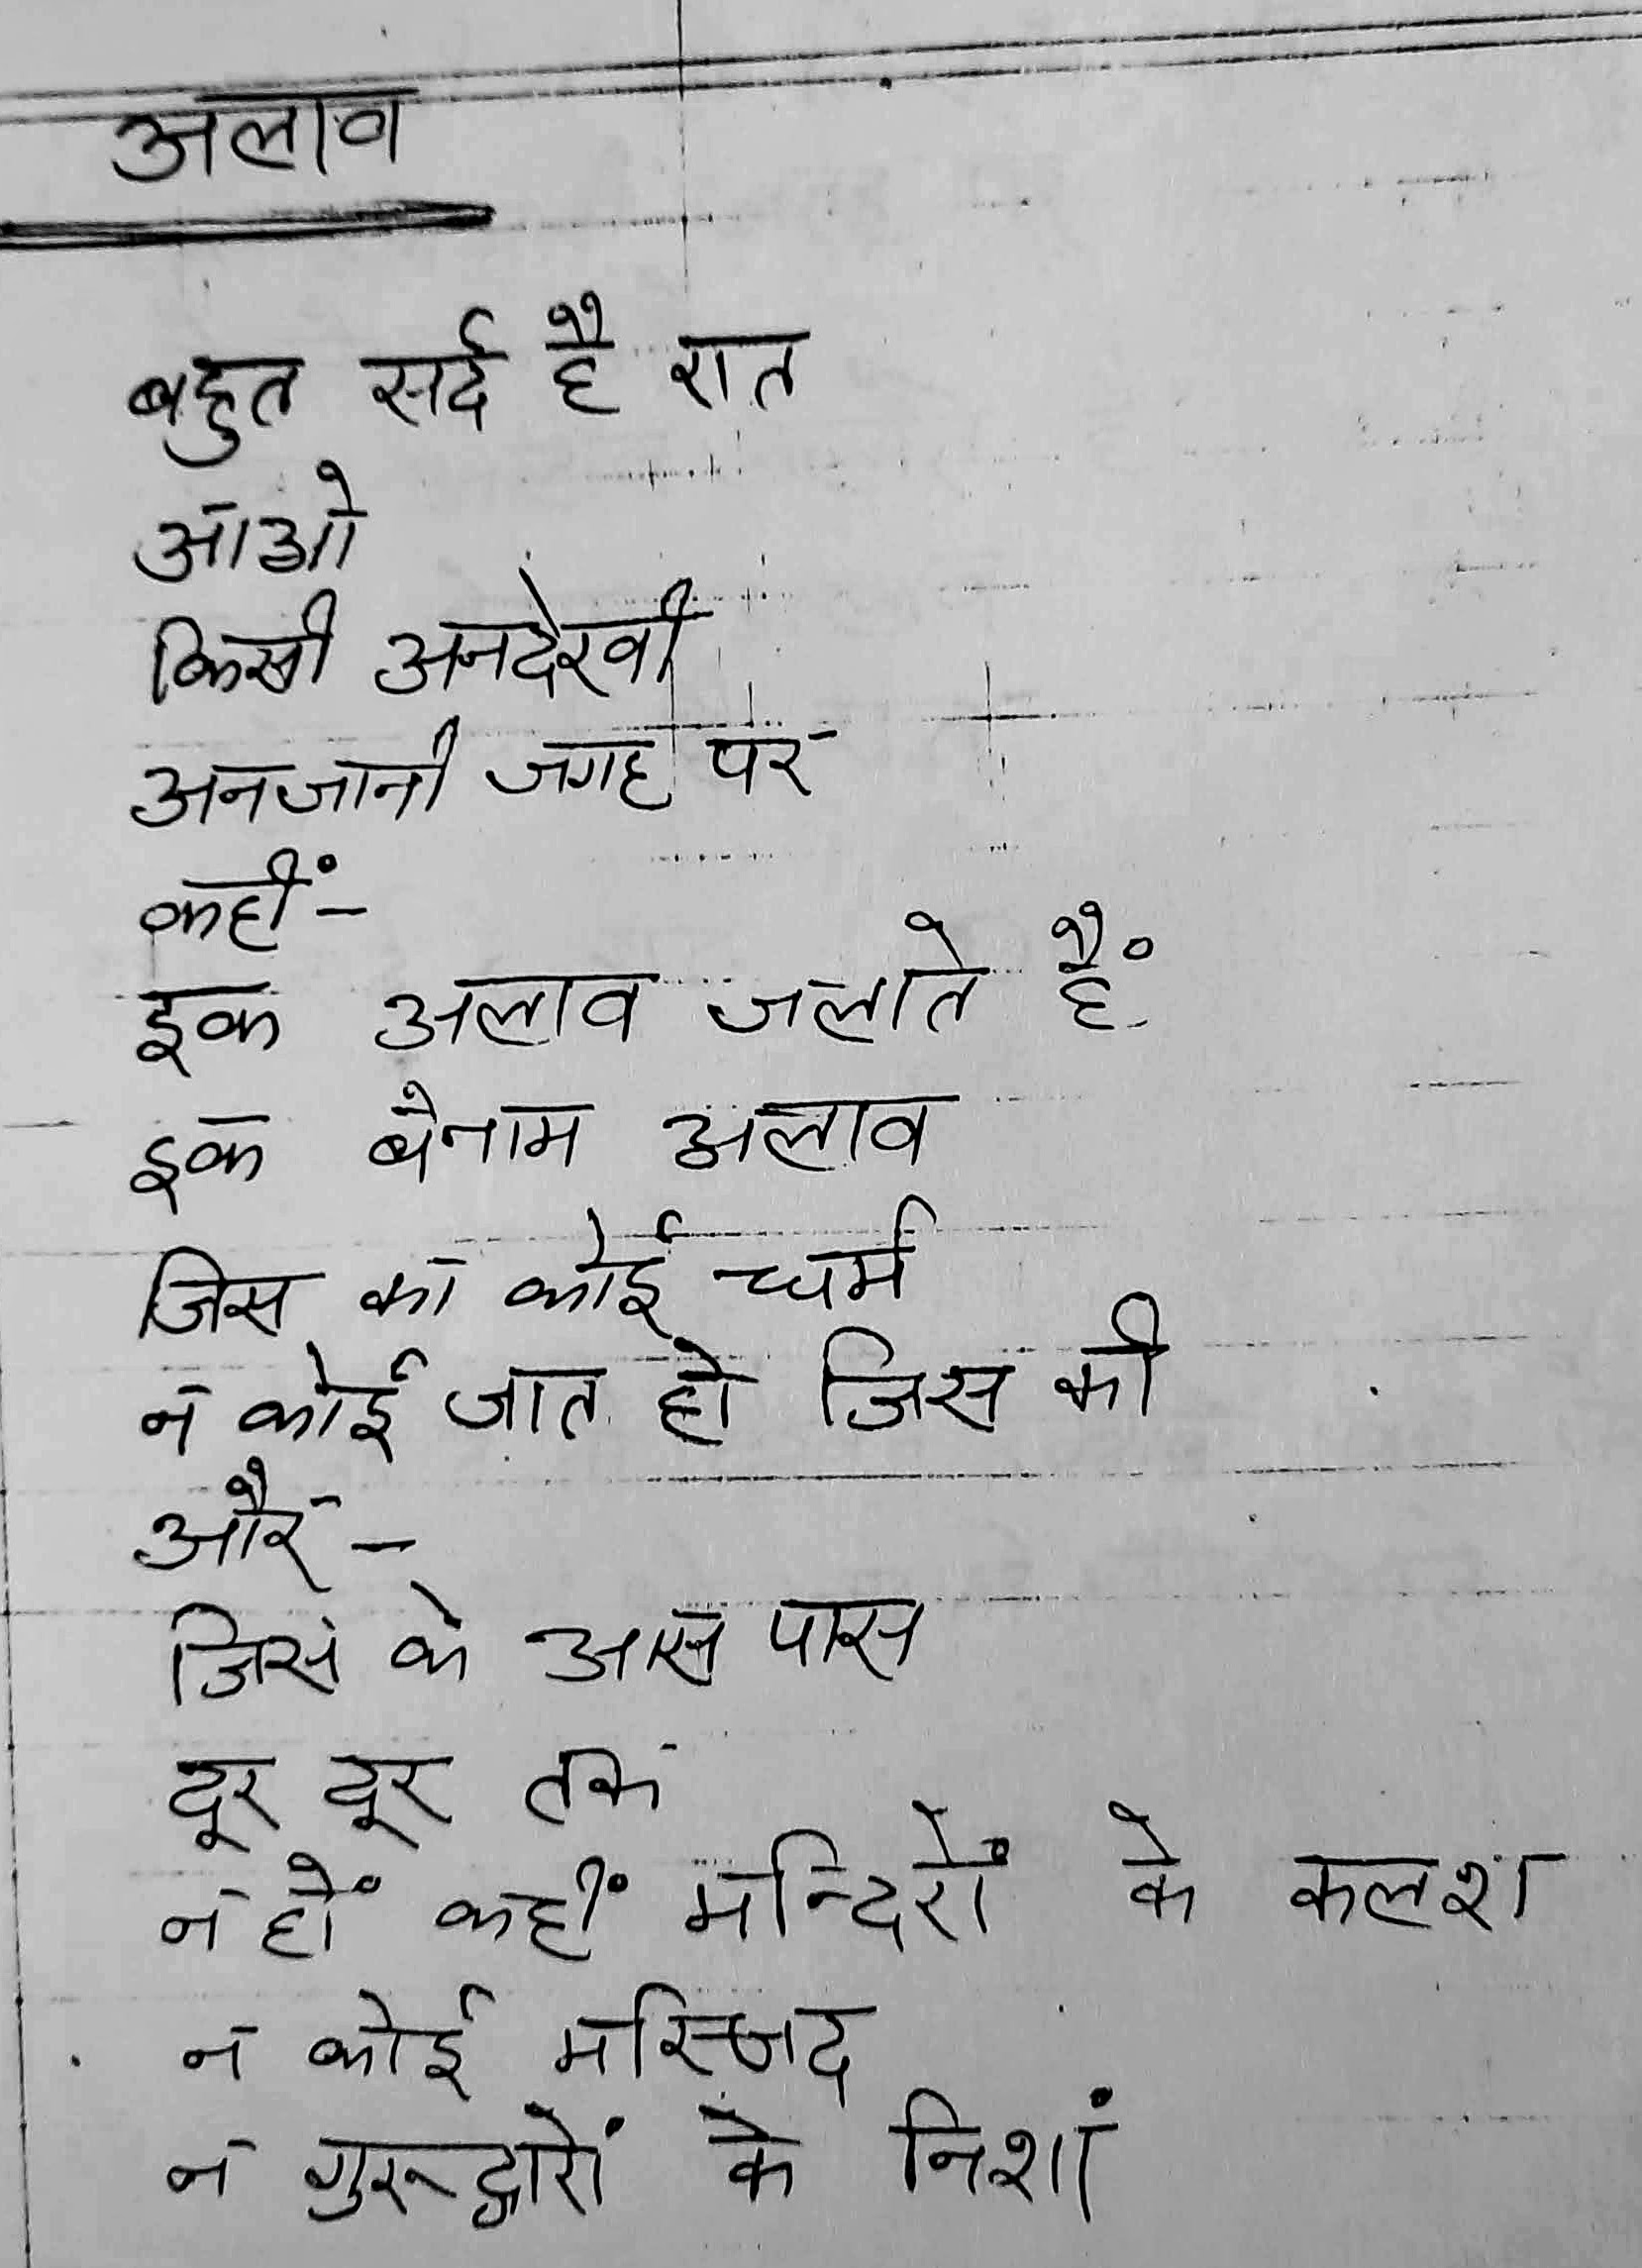 अलाव
बहुत सर्द है रात
आओ
किसी अनदेखी
अनजानी जगह पर
कहीं -
इक अलाव जलाते हैं
इक बेनाम अलाव
जिस का कोई धर्म
न कोई जात हो जिस की
और -
जिस के आस पास
दूर दूर तक
न हों कहीं मन्दिरों के कलश
न कोई मस्जिद
न गुरुद्वारों के निशां